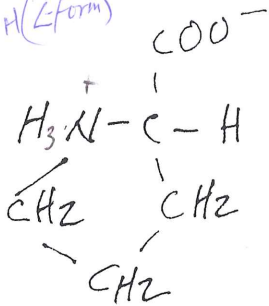 H(L-form)
COO⁻
+
H₃N – C – H
CH2 CH2
CH2